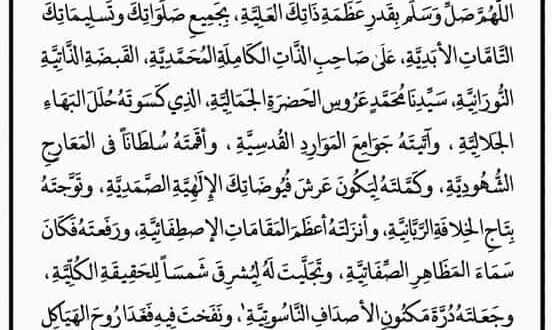 اللَّهُمَّ صَلِّ وَسَلِّمْ بِقَدْرِ عَظَمَةِ ذَاتِكَ العَلِيَّةِ، بِجَمِيعِ صَلَوَاتِكَ وَتَسْلِيمَاتِكَ
التَّامَّاتِ الأَبَدِيَّةِ، عَلَى صَاحِبِ الذَّاتِ الكَامِلَةِ المُحَمَّدِيَّةِ، القَبضَةِ الذَّاتِيَّةِ
النُّورَانِيَّةِ، سَيِّدِنَا مُحَمَّدٍ عَرُوسِ الحَضرَةِ الجَمَالِيَّةِ، الذِي كَسَوتَهُ حُلَلَ البَهَاءِ
الجَلَالِيَّةِ ، وَآتَيتَهُ جَوَامِعَ المَوَارِدِ القُدسِيَّةِ ، وأَقَمتَهُ سُلطَاناً فى المَعَارِجِ
الشُّهُودِيَّةِ ، وكَمَّلتَهُ لِيَكُونَ عَرشَ فُيُوضَاتِكَ الإِلَهِيَّةِ الصَّمَدِيَّةِ، وتَوَّجتَهُ
بِتَاجِ الخِلَافَةِ الرَّبَّانِيَّةِ، وأَنزَلتَهُ أَعظَمَ المَقَامَاتِ الإصطِفَائِيَّةِ، ورَفَعتَهُ فَكَانَ
سَمَاءَ المَظَاهِرِ الصِّفَاتِيَّةِ ، وتَجَلَّيتَ لَهُ لِيُشرِقَ شَمساً لِلحَقِيقَةِ الكُلِّيَّةِ ،
وجَعَلتَهُ دُرَّةَ مَكنُونِ الأَصدَافِ النَّاسُوتِيَّةِ ، ونَفَختَ فِيهِ فَغَدَا رُوحَ الهَيَاكِلِ